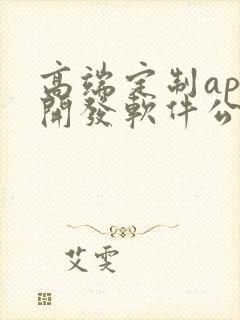 高端定制ap
開發軟件公
艾雯